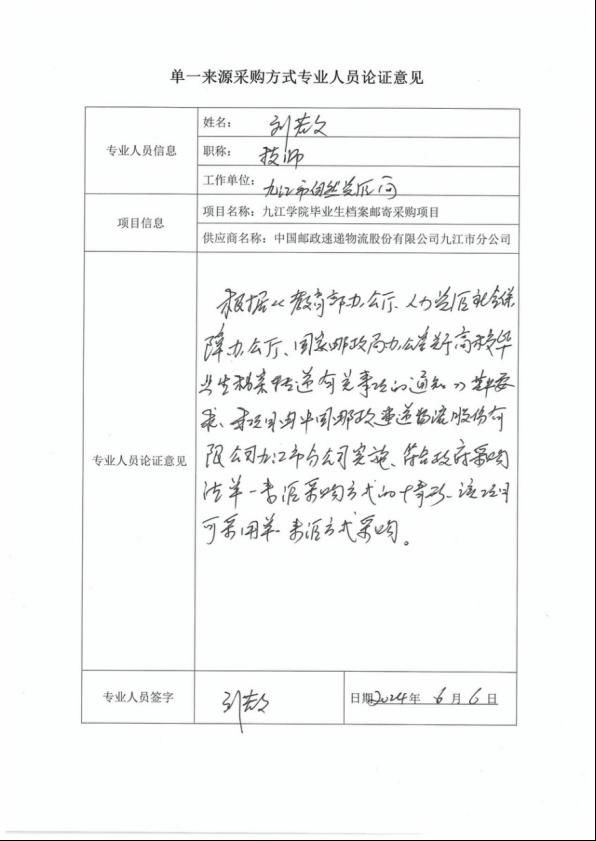 单一来源采购方式专业人员论证意见
专业人员信息
姓名:
职称: 技师
工作单位: 九江市自然
项目信息
项目名称:九江学院毕业生档案邮寄采购项目
供应商名称:中国邮政速递物流股份有限公司九江市分公司
专业人员论证意见
根据《教育部办公厅、人力资源社会保
障办公厅、国家邮政局办公室关于高校毕
业生档案转递有关事项的通知》
求,本项目由中国邮政速递物流股份有
限公司九江市分公司实施,符合政府采购
法单一来源采购方式的情形,该项目
可采用单一来源方式采购。
专业人员签字
日期2024年 6 月 6 日